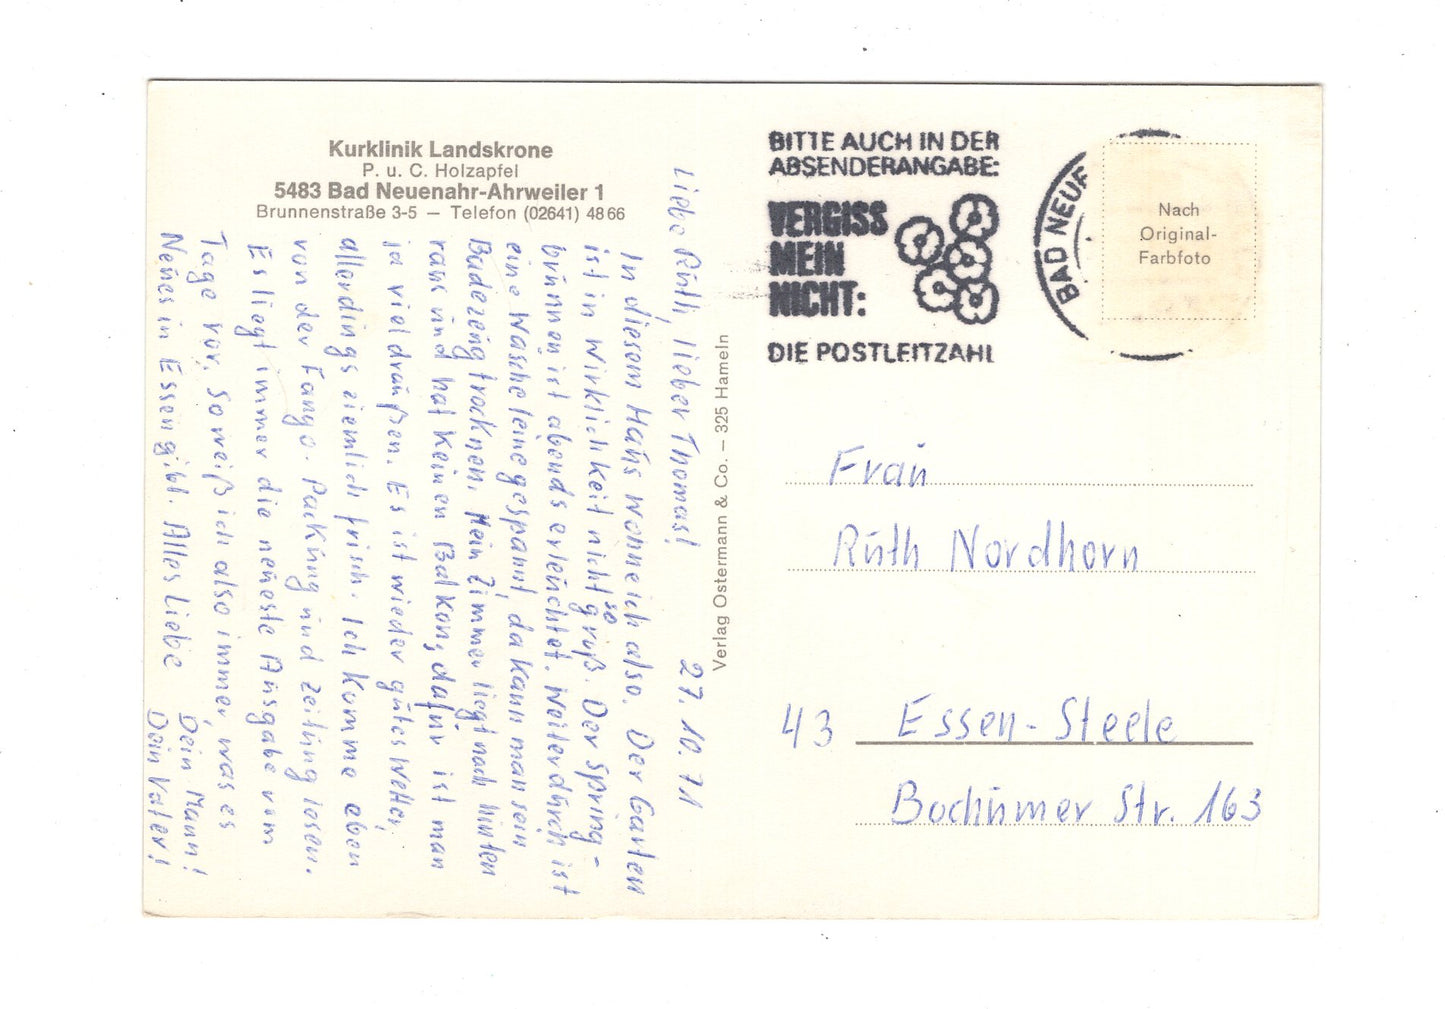 Kurklinik Landskrone
P. u. C. Holzapfel
5483 Bad Neuenahr-Ahrweiler 1
Brunnenstraße 3-5 — Telefon (02641) 4866
Liebe Ruth, lieber Thomas! 27.10.71
In diesem Haus wohne ich also. Der Garten
ist in Wirklichkeit nicht so groß. Der Spring-
brunnen ist abends erleuchtet. Weiter durch ist
eine Wäscheleine gespannt, da kann man sein
Badezeug trocknen. Mein Zimmer liegt nach hinten
raus und hat keinen Balkon, dafür ist man
ja viel draußen. Es ist wieder gutes Wetter,
allerdings ziemlich frisch. Ich komme eben
von der Fango-Packung und Zeitung lesen.
Es liegt immer die neueste Ausgabe vom
Tage vor. So weiß ich also immer, was es
Neues in Essen gibt. Alles Liebe
Dein Mann!
Dein Vater!
Verlag Ostermann & Co. — 325 Hameln
BITTE AUCH IN DER
ABSENDERANGABE:
VERGISS
MEIN
NICHT:
DIE POSTLEITZAHL
BAD NEUE
Nach
Original-
Farbfoto
Frau
Ruth Nordhorn
43 Essen-Steele
Bochumer Str. 163